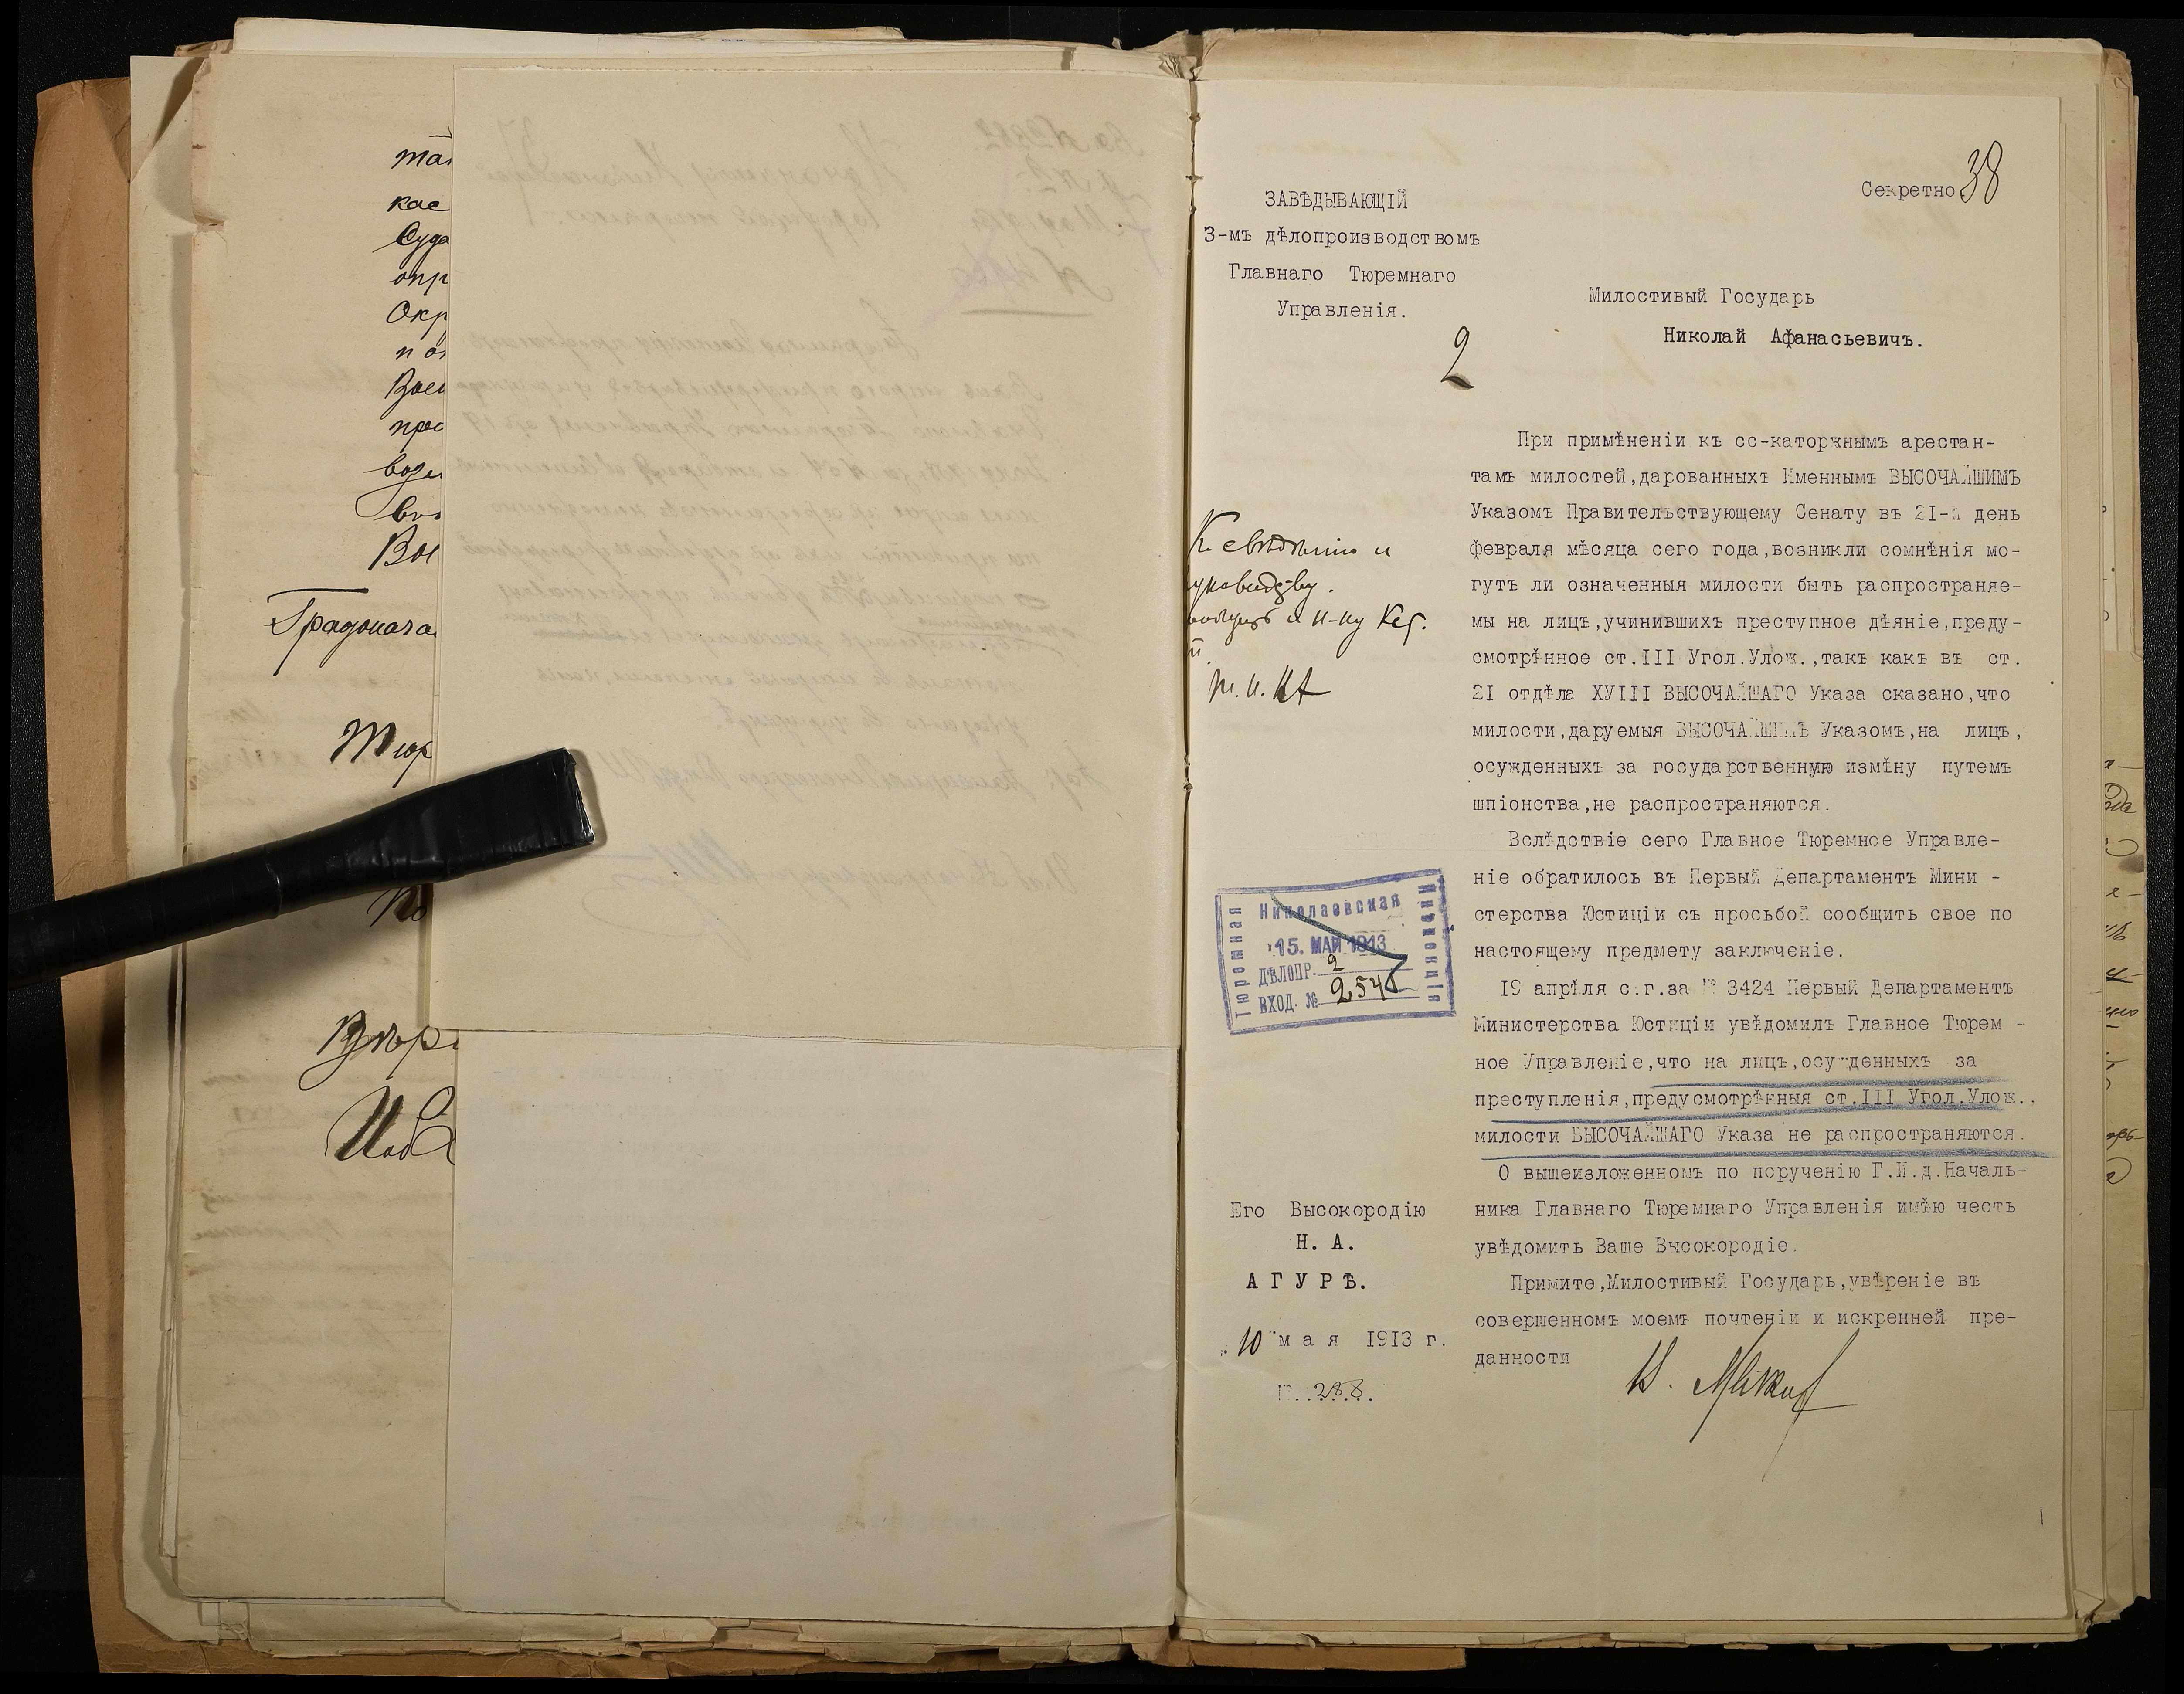 кас
Суда
опр
Окр
Воен
прос
Градонача
Тюр
По
38
Секретно
ЗАВѢДЫВАЮЩІЙ
3-мъ дѣлопроизводствомъ
Главнаго Тюремнаго
Управленія.
2
Милостивый Государь
Николай Афанасьевичъ.
При примѣненіи къ сс-каторжнымъ арестан-
тамъ милостей,дарованныхъ Именнымъ ВЫСОЧАЙШИМЪ
Указомъ Правительствующему Сенату въ 21-й день
февраля мѣсяца сего года,возникли сомнѣнія мо-
гутъ ли означенныя милости быть распространяе-
мы на лицъ,учинившихъ преступное дѣяніе,преду-
смотрѣнное ст.III Угол.Улож.,такъ какъ въ ст.
21 отдѣла XVIII ВЫСОЧАЙШАГО Указа сказано,что
милости,даруемыя ВЫСОЧАЙШИМЪ Указомъ,на лицъ,
осужденныхъ за государственную измѣну путемъ
шпіонства,не распространяются.
Вслѣдствіе сего Главное Тюремное Управле-
ніе обратилось въ Первый Департаментъ Мини -
стерства Юстиціи съ просьбой сообщить свое по
настоящему предмету заключеніе.
19 апрѣля с.г.за № 3424 Первый Департаментъ
Министерства Юстиціи увѣдомилъ Главное Тюрем -
ное Управленіе,что на лицъ,осужденныхъ за
преступленія,предусмотрѣнныя ст.III Угол.Улож..
милости ВЫСОЧАЙШАГО Указа не распространяются.
О вышеизложенномъ по порученію Г.И.д.Началь-
ника Главнаго Тюремнаго Управленія имѣю честь
увѣдомить Ваше Высокородіе.
Примите,Милостивый Государь,увѣреніе въ
совершенномъ моемъ почтеніи и искренней пре-
данности
Къ свѣдѣнію и
руководству.
Т. И. НА
Тюремная
Николаевская
Инспекція
15. МАЙ 1913
ДѢЛОПР. 2
ВХОД. № 2541
Его Высокородію
Н. А.
АГУРѢ.
„10" мая 1913 г.
№.288.